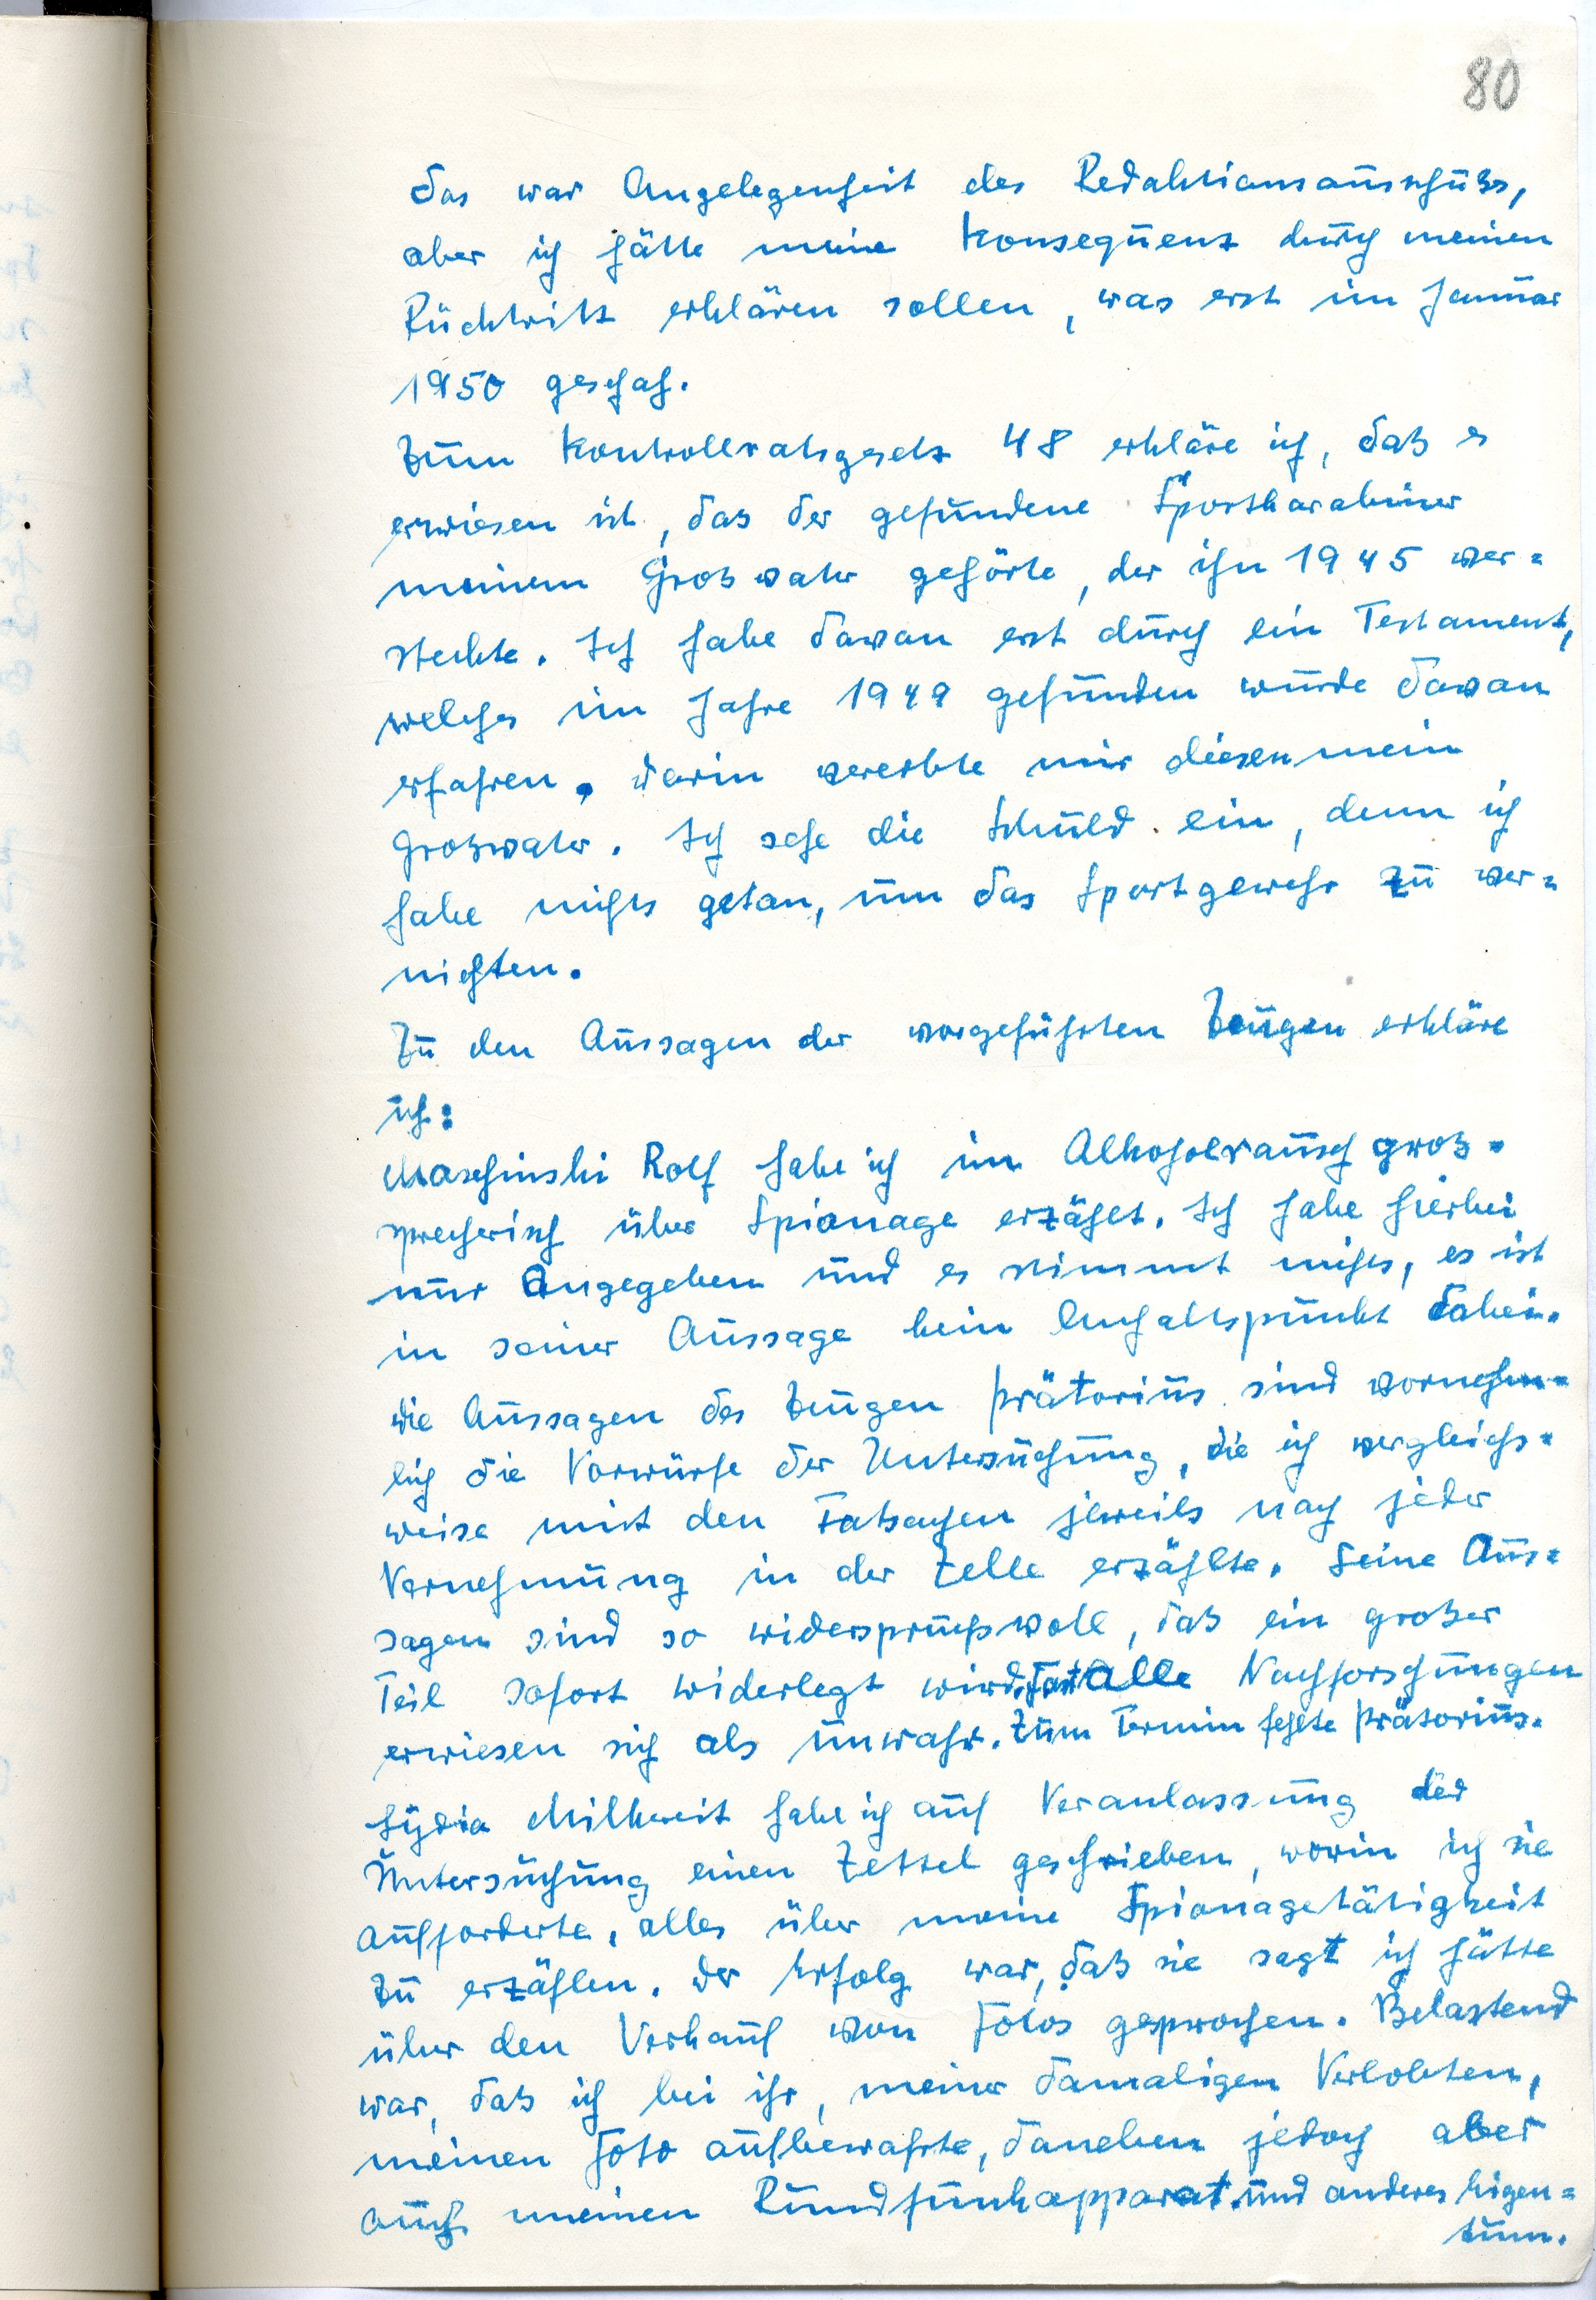 80
Das war Angelegenheit des Redaktionsausschuss,
aber ich hätte meine Konsequenz durch meinen
Rücktritt erklären sollen, was erst im Januar
1950 geschah.
Zum Kontrollratsgesetz 48 erkläre ich, daß es
erwiesen ist, das der gefundene Sportkarabiner
meinem Großvater gehörte, der ihn 1945 ver=
steckte. Ich habe davon erst durch ein Testament,
welches im Jahre 1949 gefunden wurde davon
erfahren. Darin vererbte mir diesen mein
Großvater. Ich sehe die Schuld ein, denn ich
habe nichts getan, um das Sportgewehr zu ver=
nichten.
Zu den Aussagen der vorgeführten Zeugen erkläre
ich:
Maschinski Rolf habe ich im Alkoholrausch groß=
sprecherisch über Spionage erzählt. Ich habe hierbei
nur angegeben und es stimmt nichts, es ist
in seiner Aussage kein Anhaltspunkt dabei.
Die Aussagen des Zeugen Prätorius sind vornehm=
lich die Vorwürfe der Untersuchung, die ich vergleichs=
weise mit den Tatsachen jeweils nach jeder
Vernehmung in der Zelle erzählte. Seine Aus=
sagen sind so widerspruchsvoll, daß ein großer
Teil sofort widerlegt wird. Fast alle Nachforschungen
erwiesen sich als unwahr. Zum Termin fehlte Prätorius.
Lydia Milkereit habe ich auf Veranlassung der
Untersuchung einen Zettel geschrieben, worin ich sie
aufforderte, alles über meine Spionagetätigkeit
zu erzählen. Der Erfolg war, daß sie sagt ich hätte
über den Verkauf von Fotos gesprochen. Belastend
war, daß ich bei ihr, meiner damaligen Verlobten,
meinen Foto aufbewahrte, daneben jedoch aber
auch meinen Rundfunkapparat und anderes Eigen=
tum.